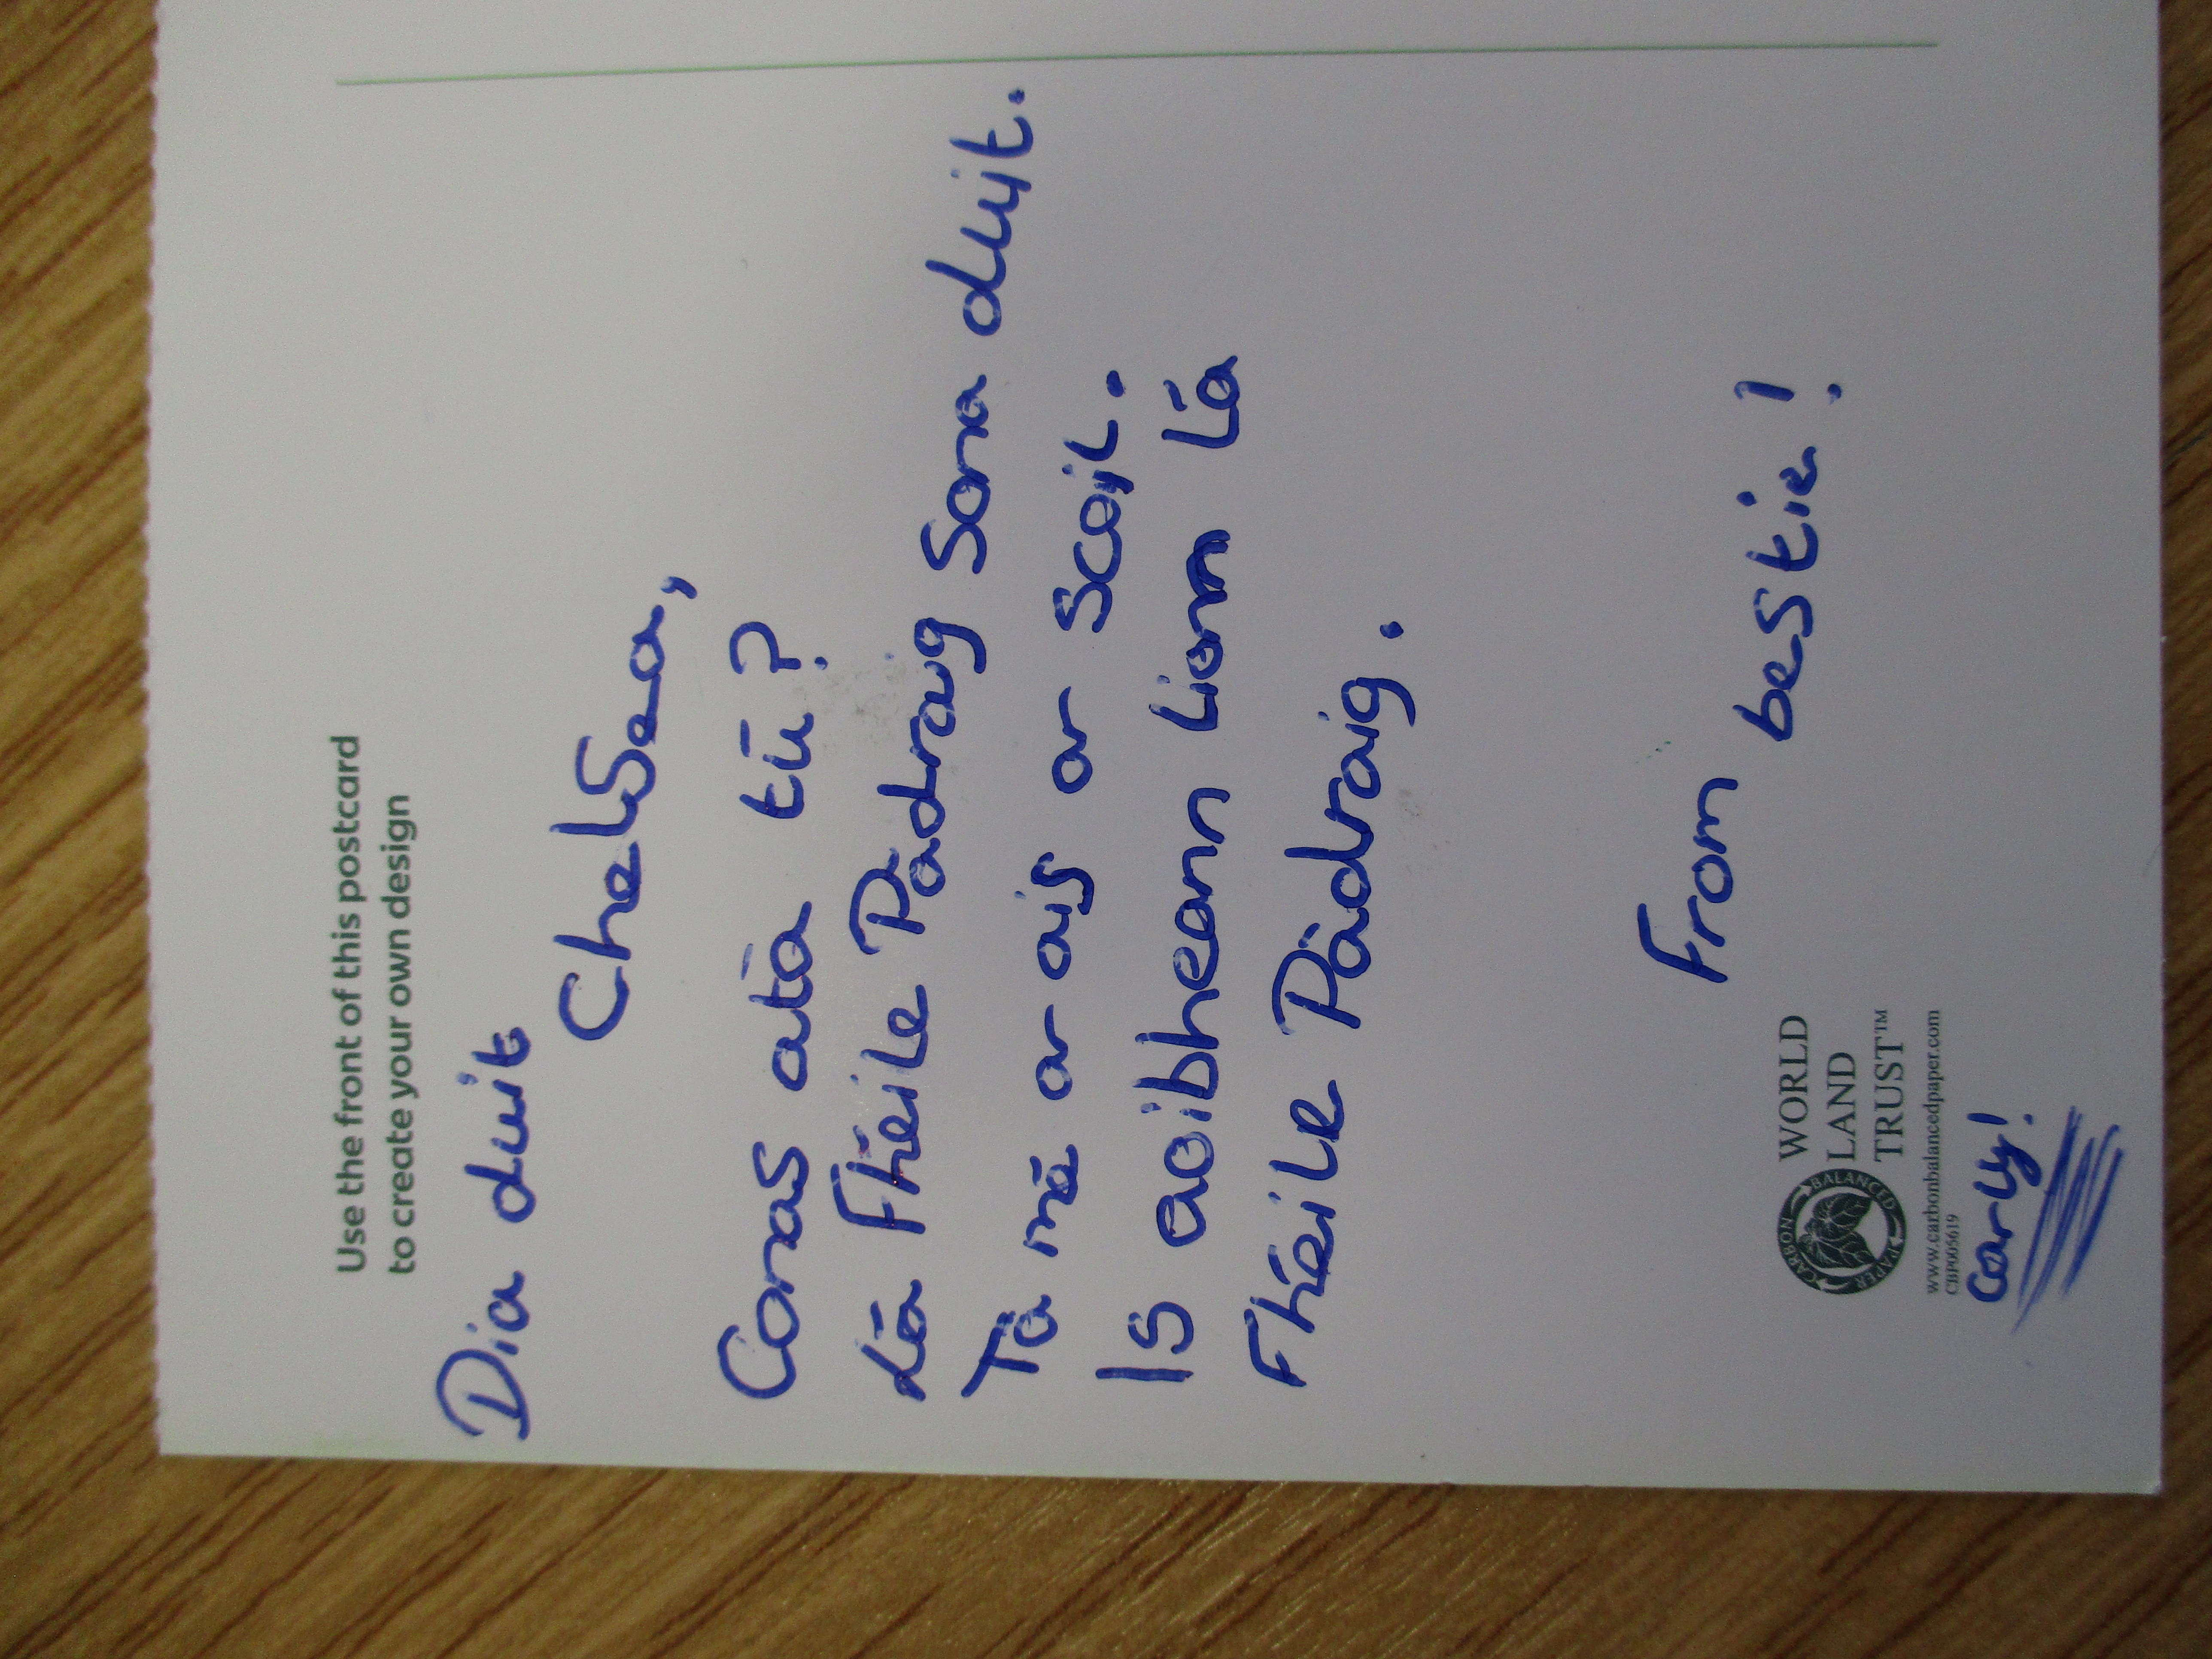 Use the front of this postcard
to create your own design
Dia duit
Chelsea,
Conas atá tú?
Lá Fhéile Pádraig Sona duit.
Tá mé ar ais ar scoil.
Is aoibheann liom Lá
Fhéile Pádraig.
From bestie!
WORLD
LAND
TRUST™
CARBON BALANCED PAPER
www.carbonbalancedpaper.com
CBP005619
Carly!